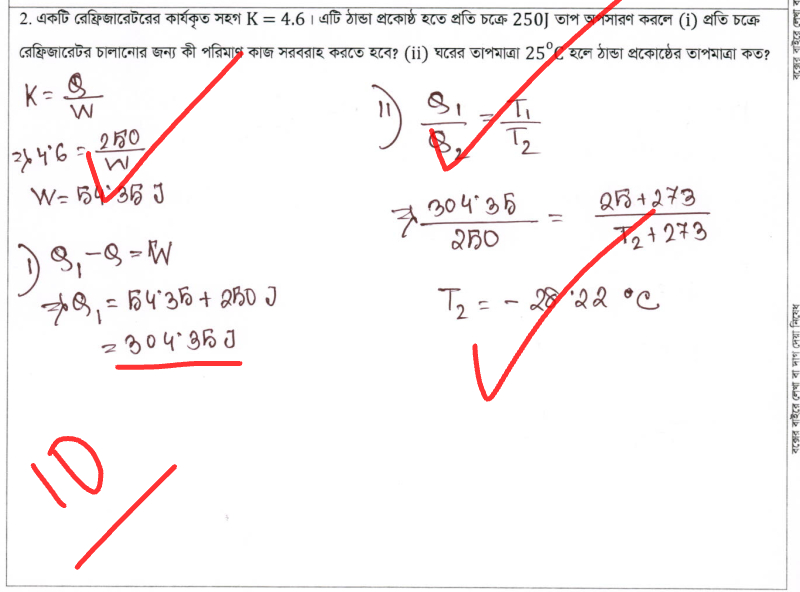 2. একটি রেফ্রিজারেটরের কার্যকৃত সহগ K = 4.6। এটি ঠান্ডা প্রকোষ্ঠ হতে প্রতি চক্রে 250J তাপ অপসারণ করলে (i) প্রতি চক্রে
রেফ্রিজারেটর চালানোর জন্য কী পরিমাণ কাজ সরবরাহ করতে হবে? (ii) ঘরের তাপমাত্রা 25⁰C হলে ঠান্ডা প্রকোষ্ঠের তাপমাত্রা কত?
K = Q/W
⇒ 4.6 = 250/W
W = 54.35 J
i) Q₁ - Q = W
⇒ Q₁ = 54.35 + 250 J
= 304.35 J
ii) Q₁/Q₂ = T₁/T₂
⇒ 304.35/250 = 25+273/T₂+273
T₂ = - 28.22 °C
10
বক্সের বাইরে লেখা বা দাগ দেয়া নিষেধ